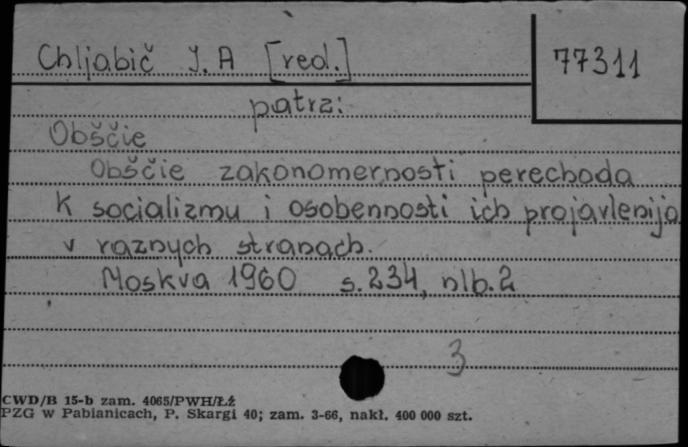 Chljabič J. A [red.]
77311
patrz:
Obščie
Obščie zakonomernosti perechoda
k socializmu i osobennosti ich projavlenija
v raznych stranach.
Moskva 1960 s. 234, nlb. 2
3
CWD/B 15-b zam. 4065/PWH/Łż
PZG w Pabianicach, P. Skargi 40; zam. 3-66, nakł. 400 000 szt.